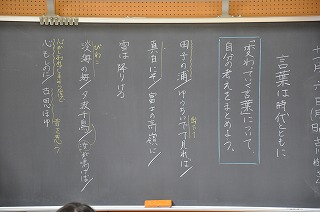 十一月六日(月)
言葉は時代とともに
「変わっていく言葉」について、
自分の考えをまとめよう。
田子の浦ゆうちいでて見れば/
真白にそ/富士の高嶺に/
雪は降りける
淡海の海/夕波千鳥/汝が鳴けば/
心もしのに/古思ほゆ